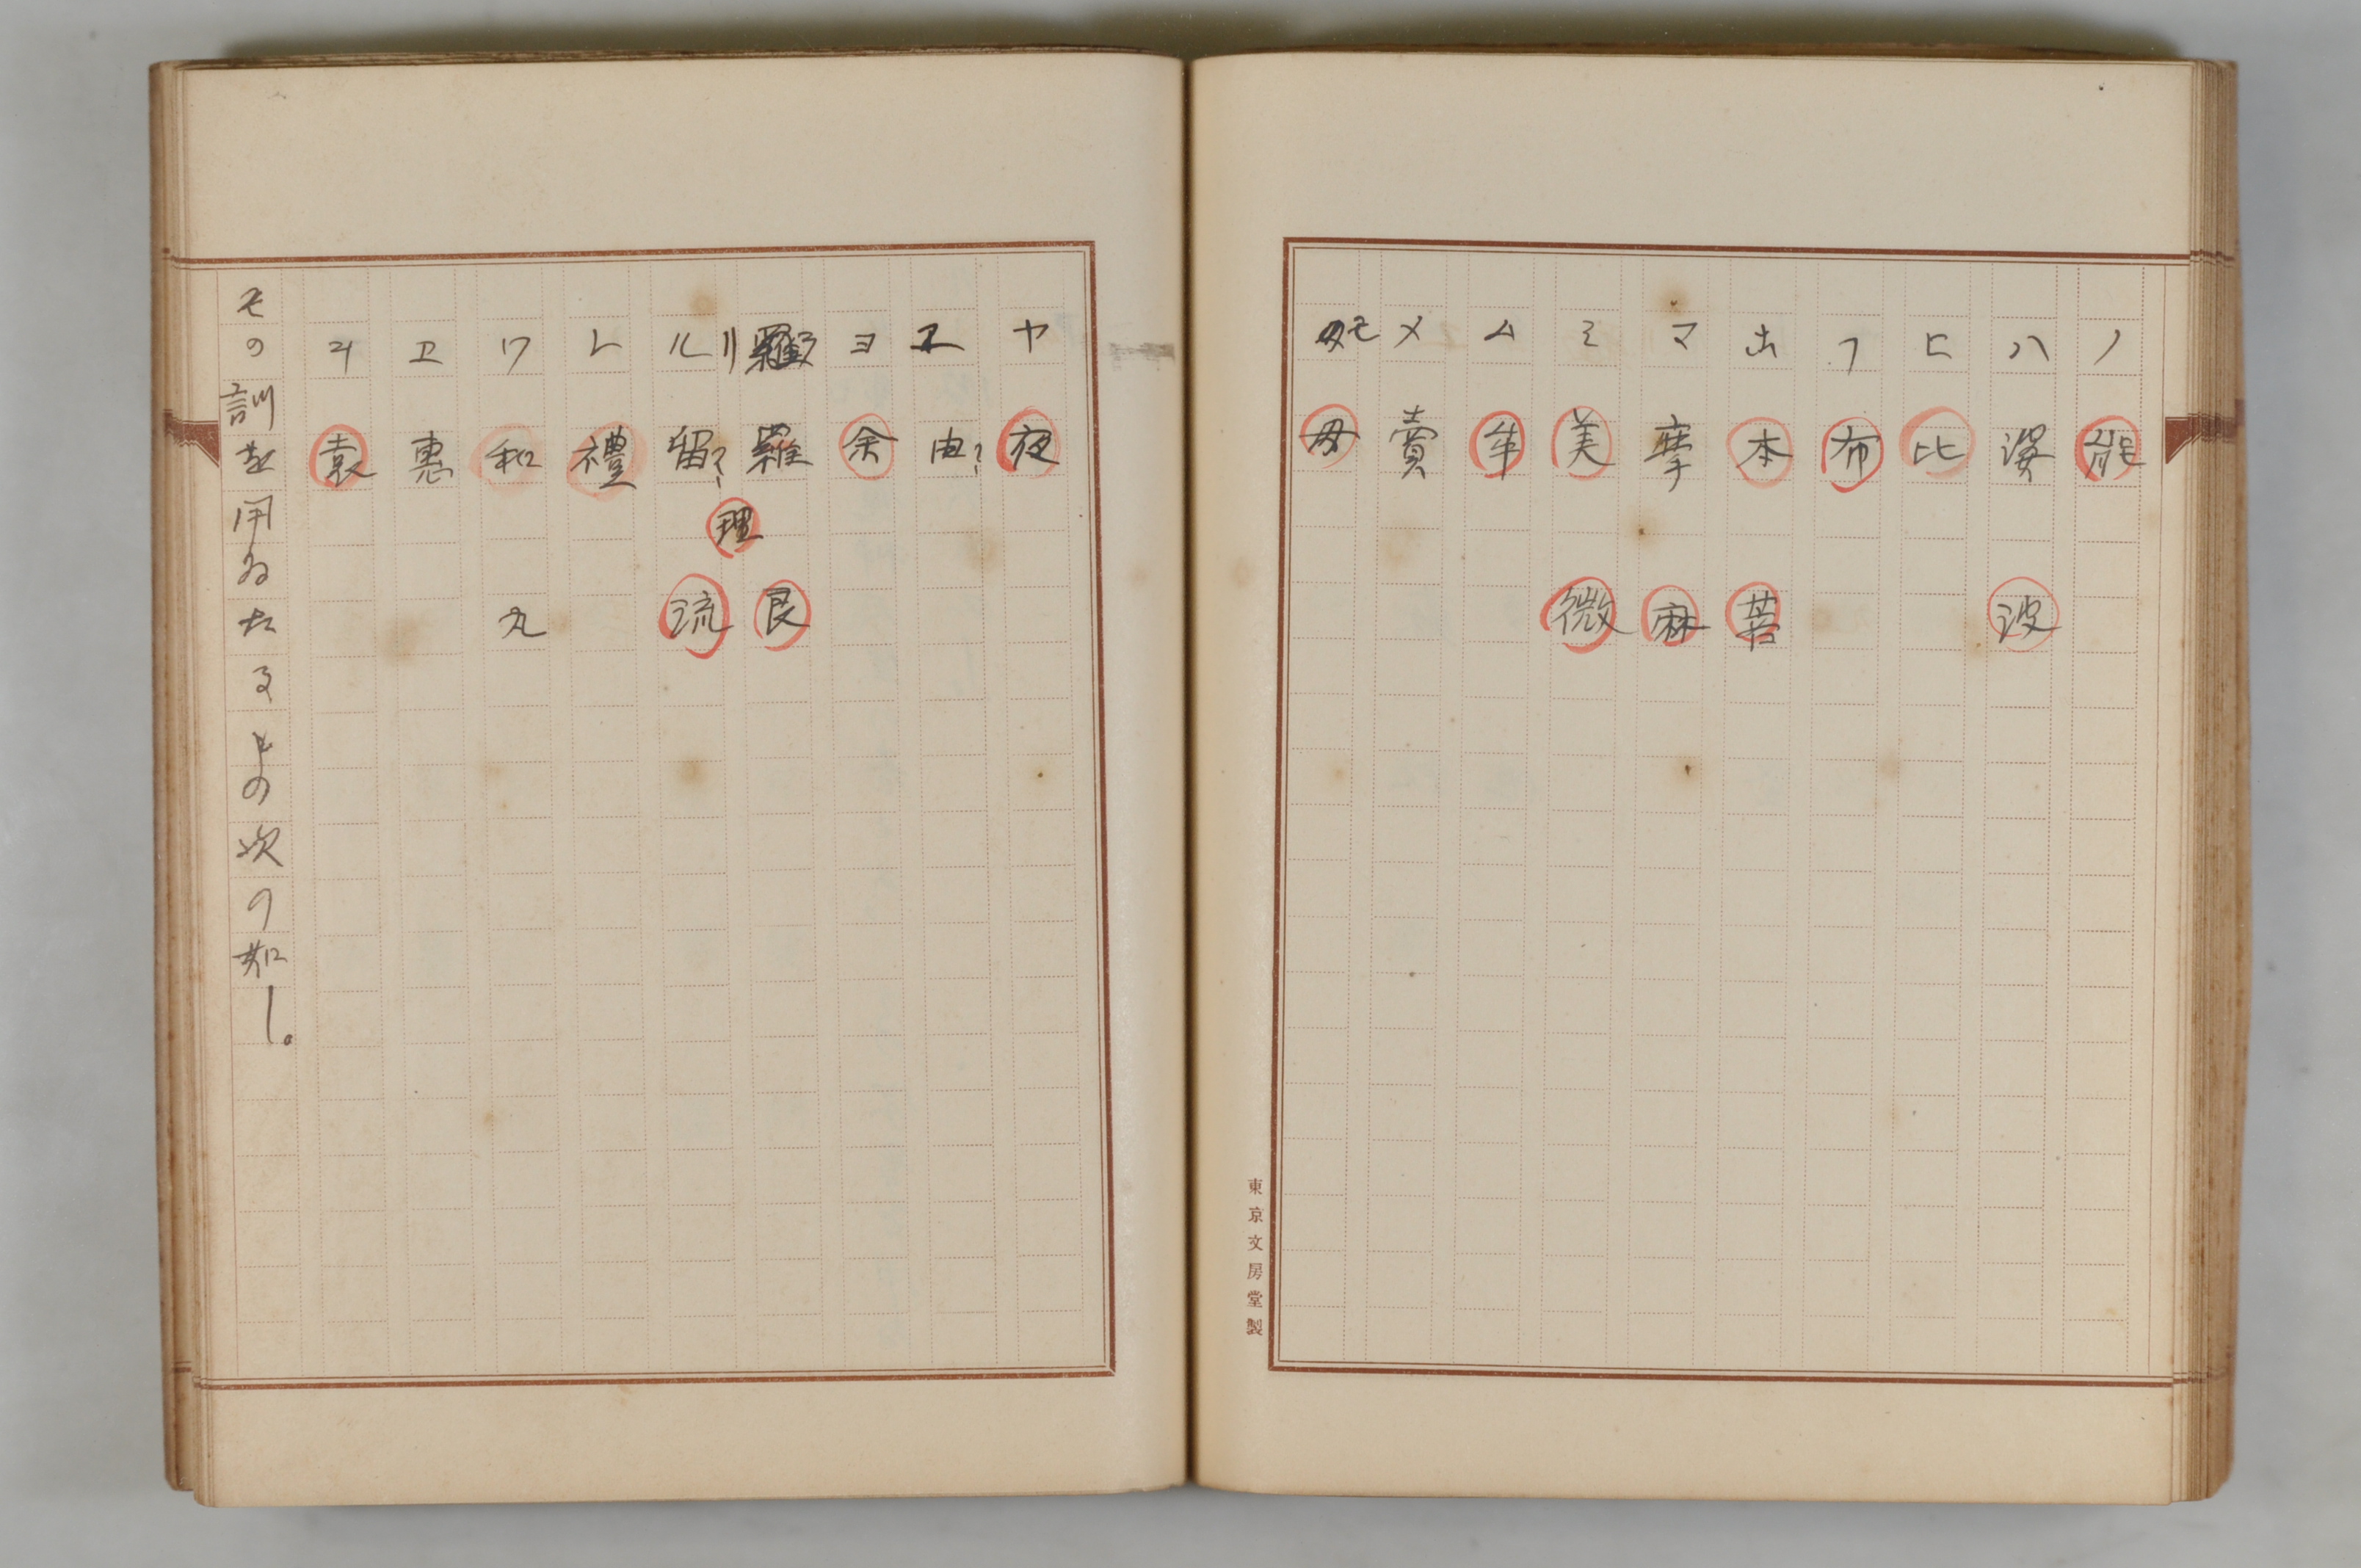 ノ 能
ハ 婆 波
ヒ 比
フ 布
ホ 本 菩
マ 摩 麻
ミ 美 微
ム 牟
メ 賣
モ 母
東京文房堂製
ヤ 夜
ユ 由?
ヨ 余
ラ 羅 良
リ 理
ル 留? 流
レ 禮
ワ 和 丸
ヱ 惠
ヲ 袁
その訓を用ゐたるもの次の如し。